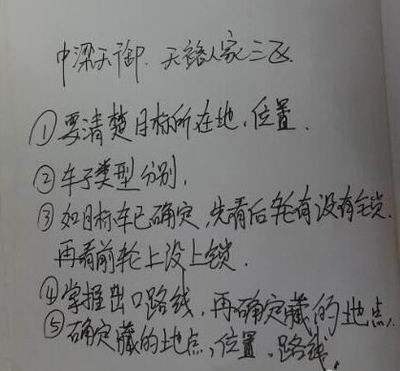 中梁天御. 天路人家三区
①要清楚目标所在地,位置.
②车子类型分别,
③如目标车已确定,先看后轮有没有锁.
再看前轮上没上锁.
④掌握出口路线,再确定藏的地点.
⑤确定藏的地点,位置,路线.